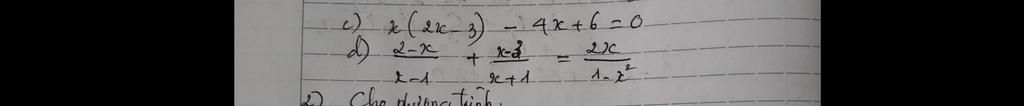 c) x(2x-3) - 4x+6=0
d) (2-x)/(x-1) + (x-3)/(x+1) = 2x/(1-x²)
2) Cho phương trình